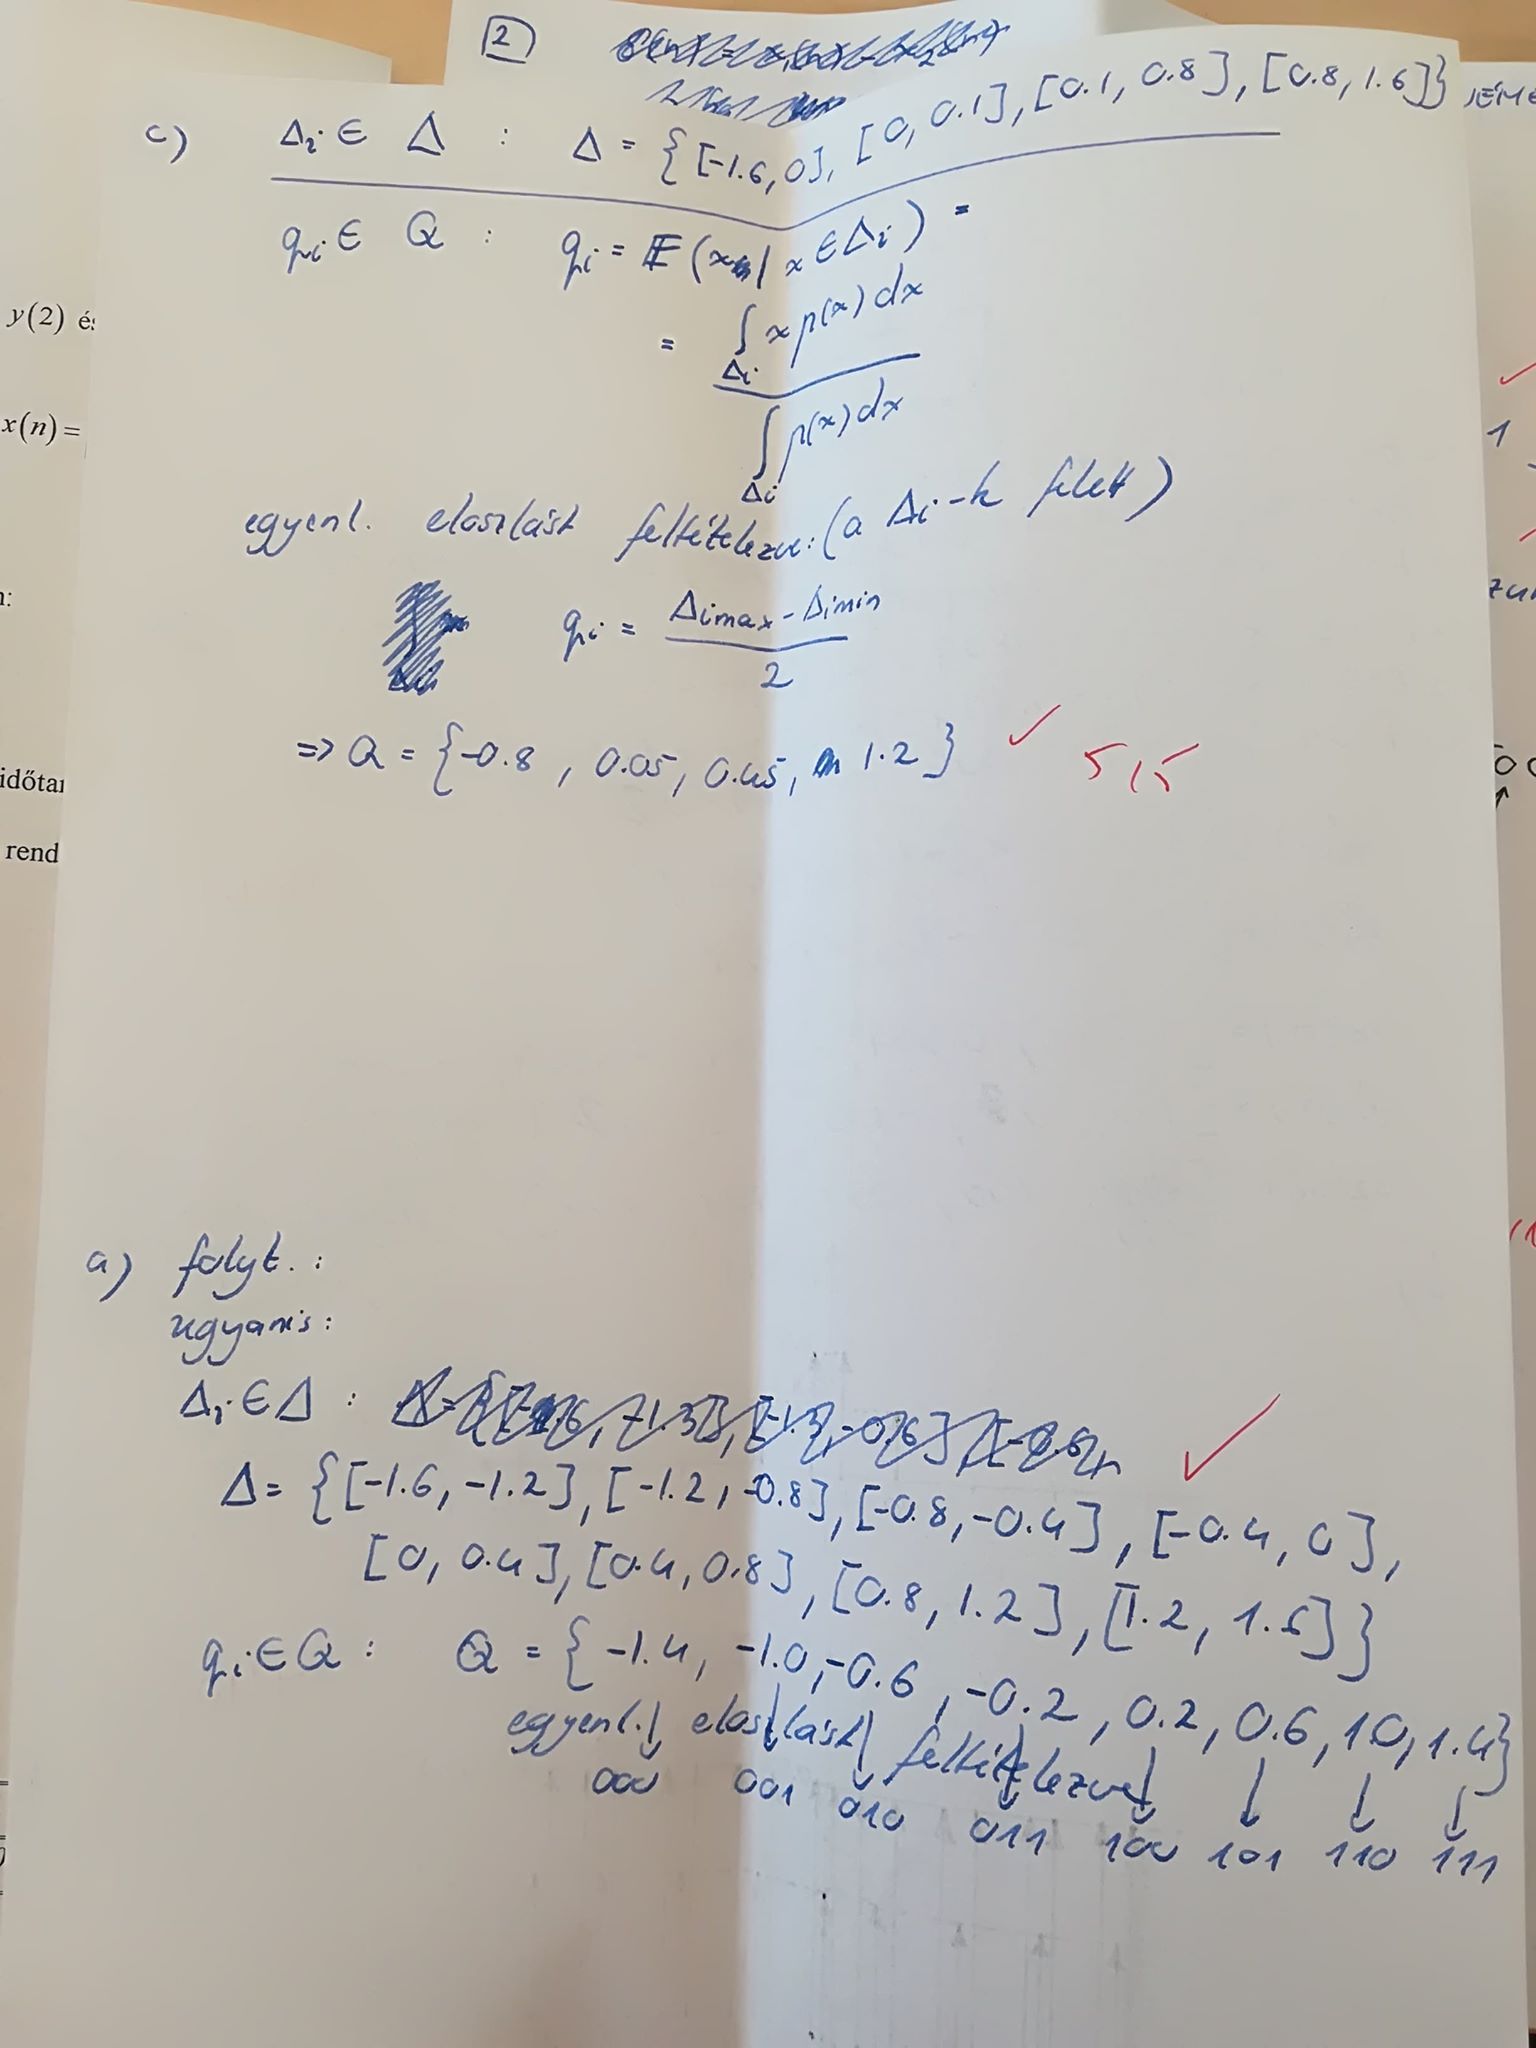 2
c) Δi ∈ Δ : Δ = {[-1.6, 0], [0, 0.1], [0.1, 0.8], [0.8, 1.6]}
qi ∈ Q : qi = E(x | x ∈ Δi) =
= ∫Δi x p(x) dx / ∫Δi p(x) dx
egyenl. eloszlást feltételezve: (a Δi-k felett)
qi = Δimax - Δimin / 2
=> Q = {-0.8, 0.05, 0.45, 1.2} ✓ 5/5
a) folyt. :
ugyanis:
Δi ∈ Δ :
Δ = {[-1.6, -1.2], [-1.2, -0.8], [-0.8, -0.4], [-0.4, 0],
[0, 0.4], [0.4, 0.8], [0.8, 1.2], [1.2, 1.6]} ✓
qi ∈ Q : Q = {-1.4, -1.0, -0.6, -0.2, 0.2, 0.6, 1.0, 1.4}
egyenl. eloszlást feltételezve
000 001 010 011 100 101 110 111
y(2) és
x(n) =
n:
időtar
rend